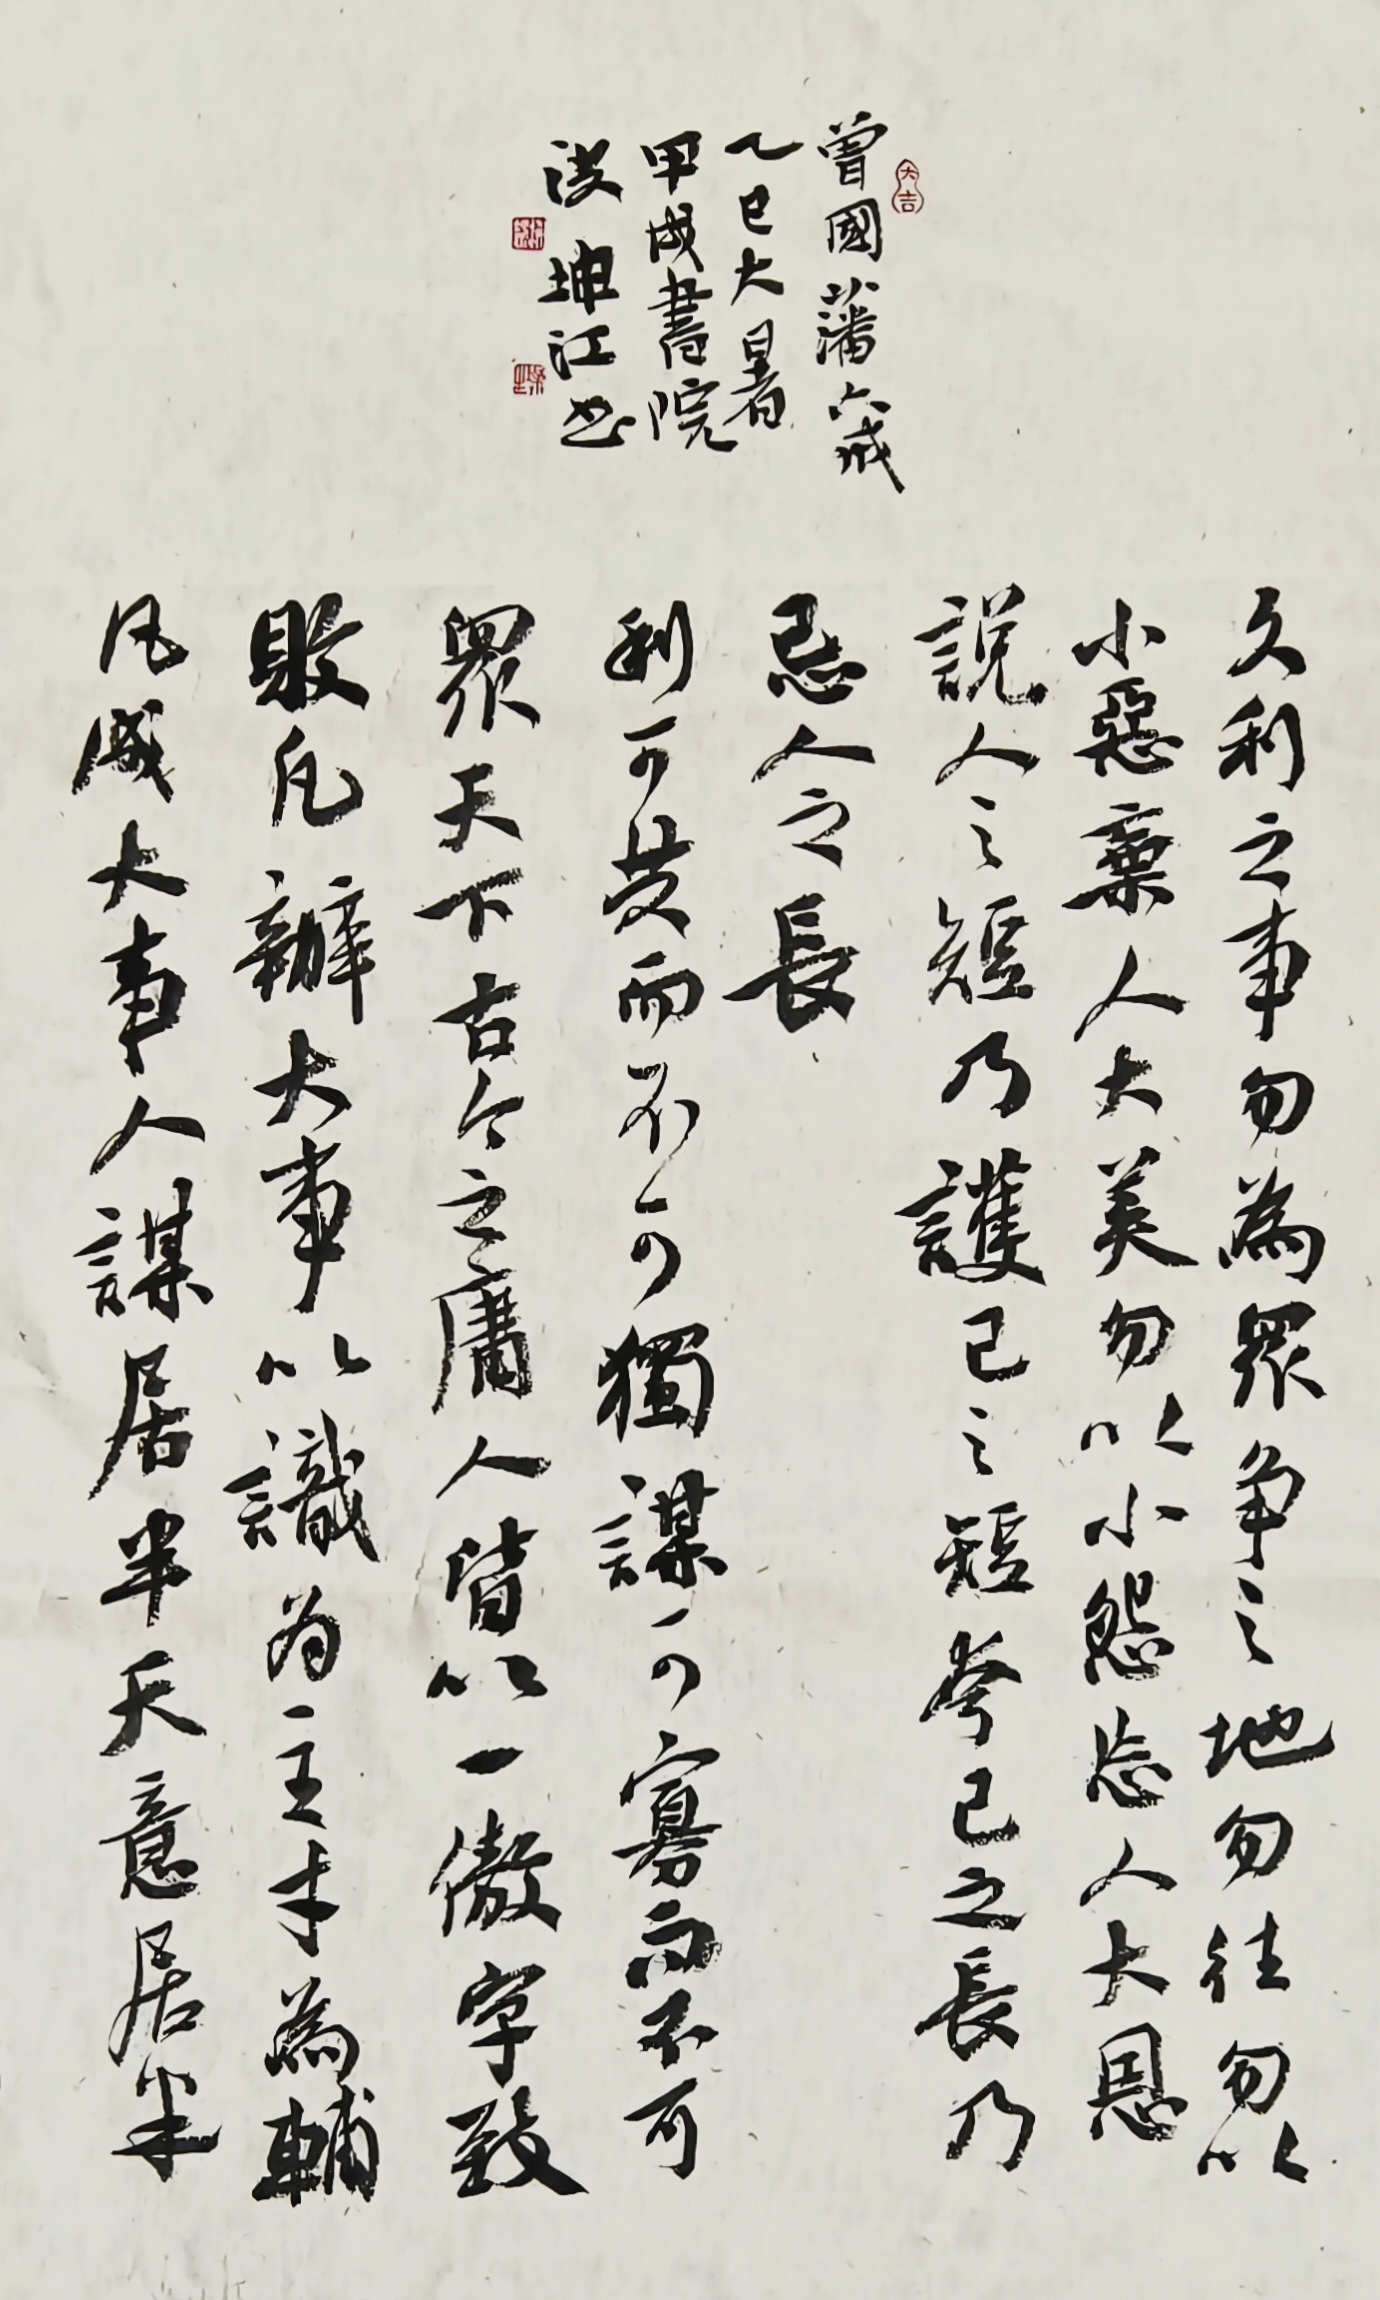 大吉
曾國藩六戒
乙巳大暑
書院
坤江书
久利之事勿為眾争之地勿往勿以
小惡棄人大美勿以小怨忘人大恩
說人之短乃護己之短夸己之長乃
忌人之長
利可共而不可獨謀可寡而不可
眾天下古今之庸人皆以一傲字致
敗凡辦大事以識为主才為輔
凡成大事人謀居半天意居半